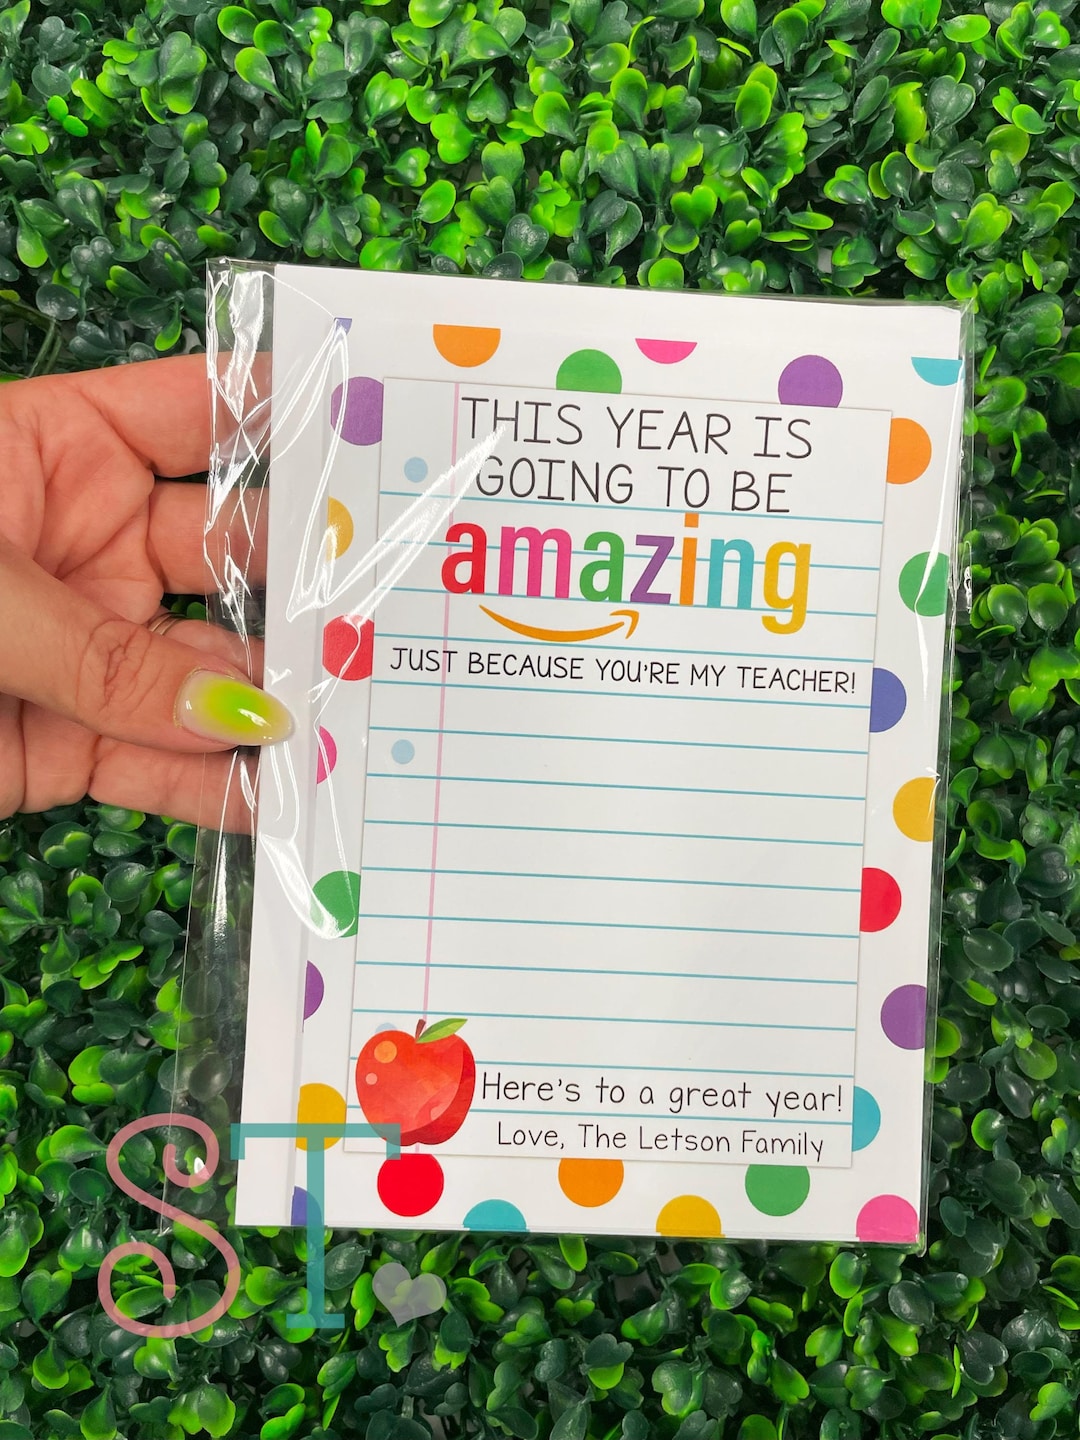 THIS YEAR IS
GOING TO BE
amazing
JUST BECAUSE YOU'RE MY TEACHER!
Here's to a great year!
Love, The Letson Family
ST